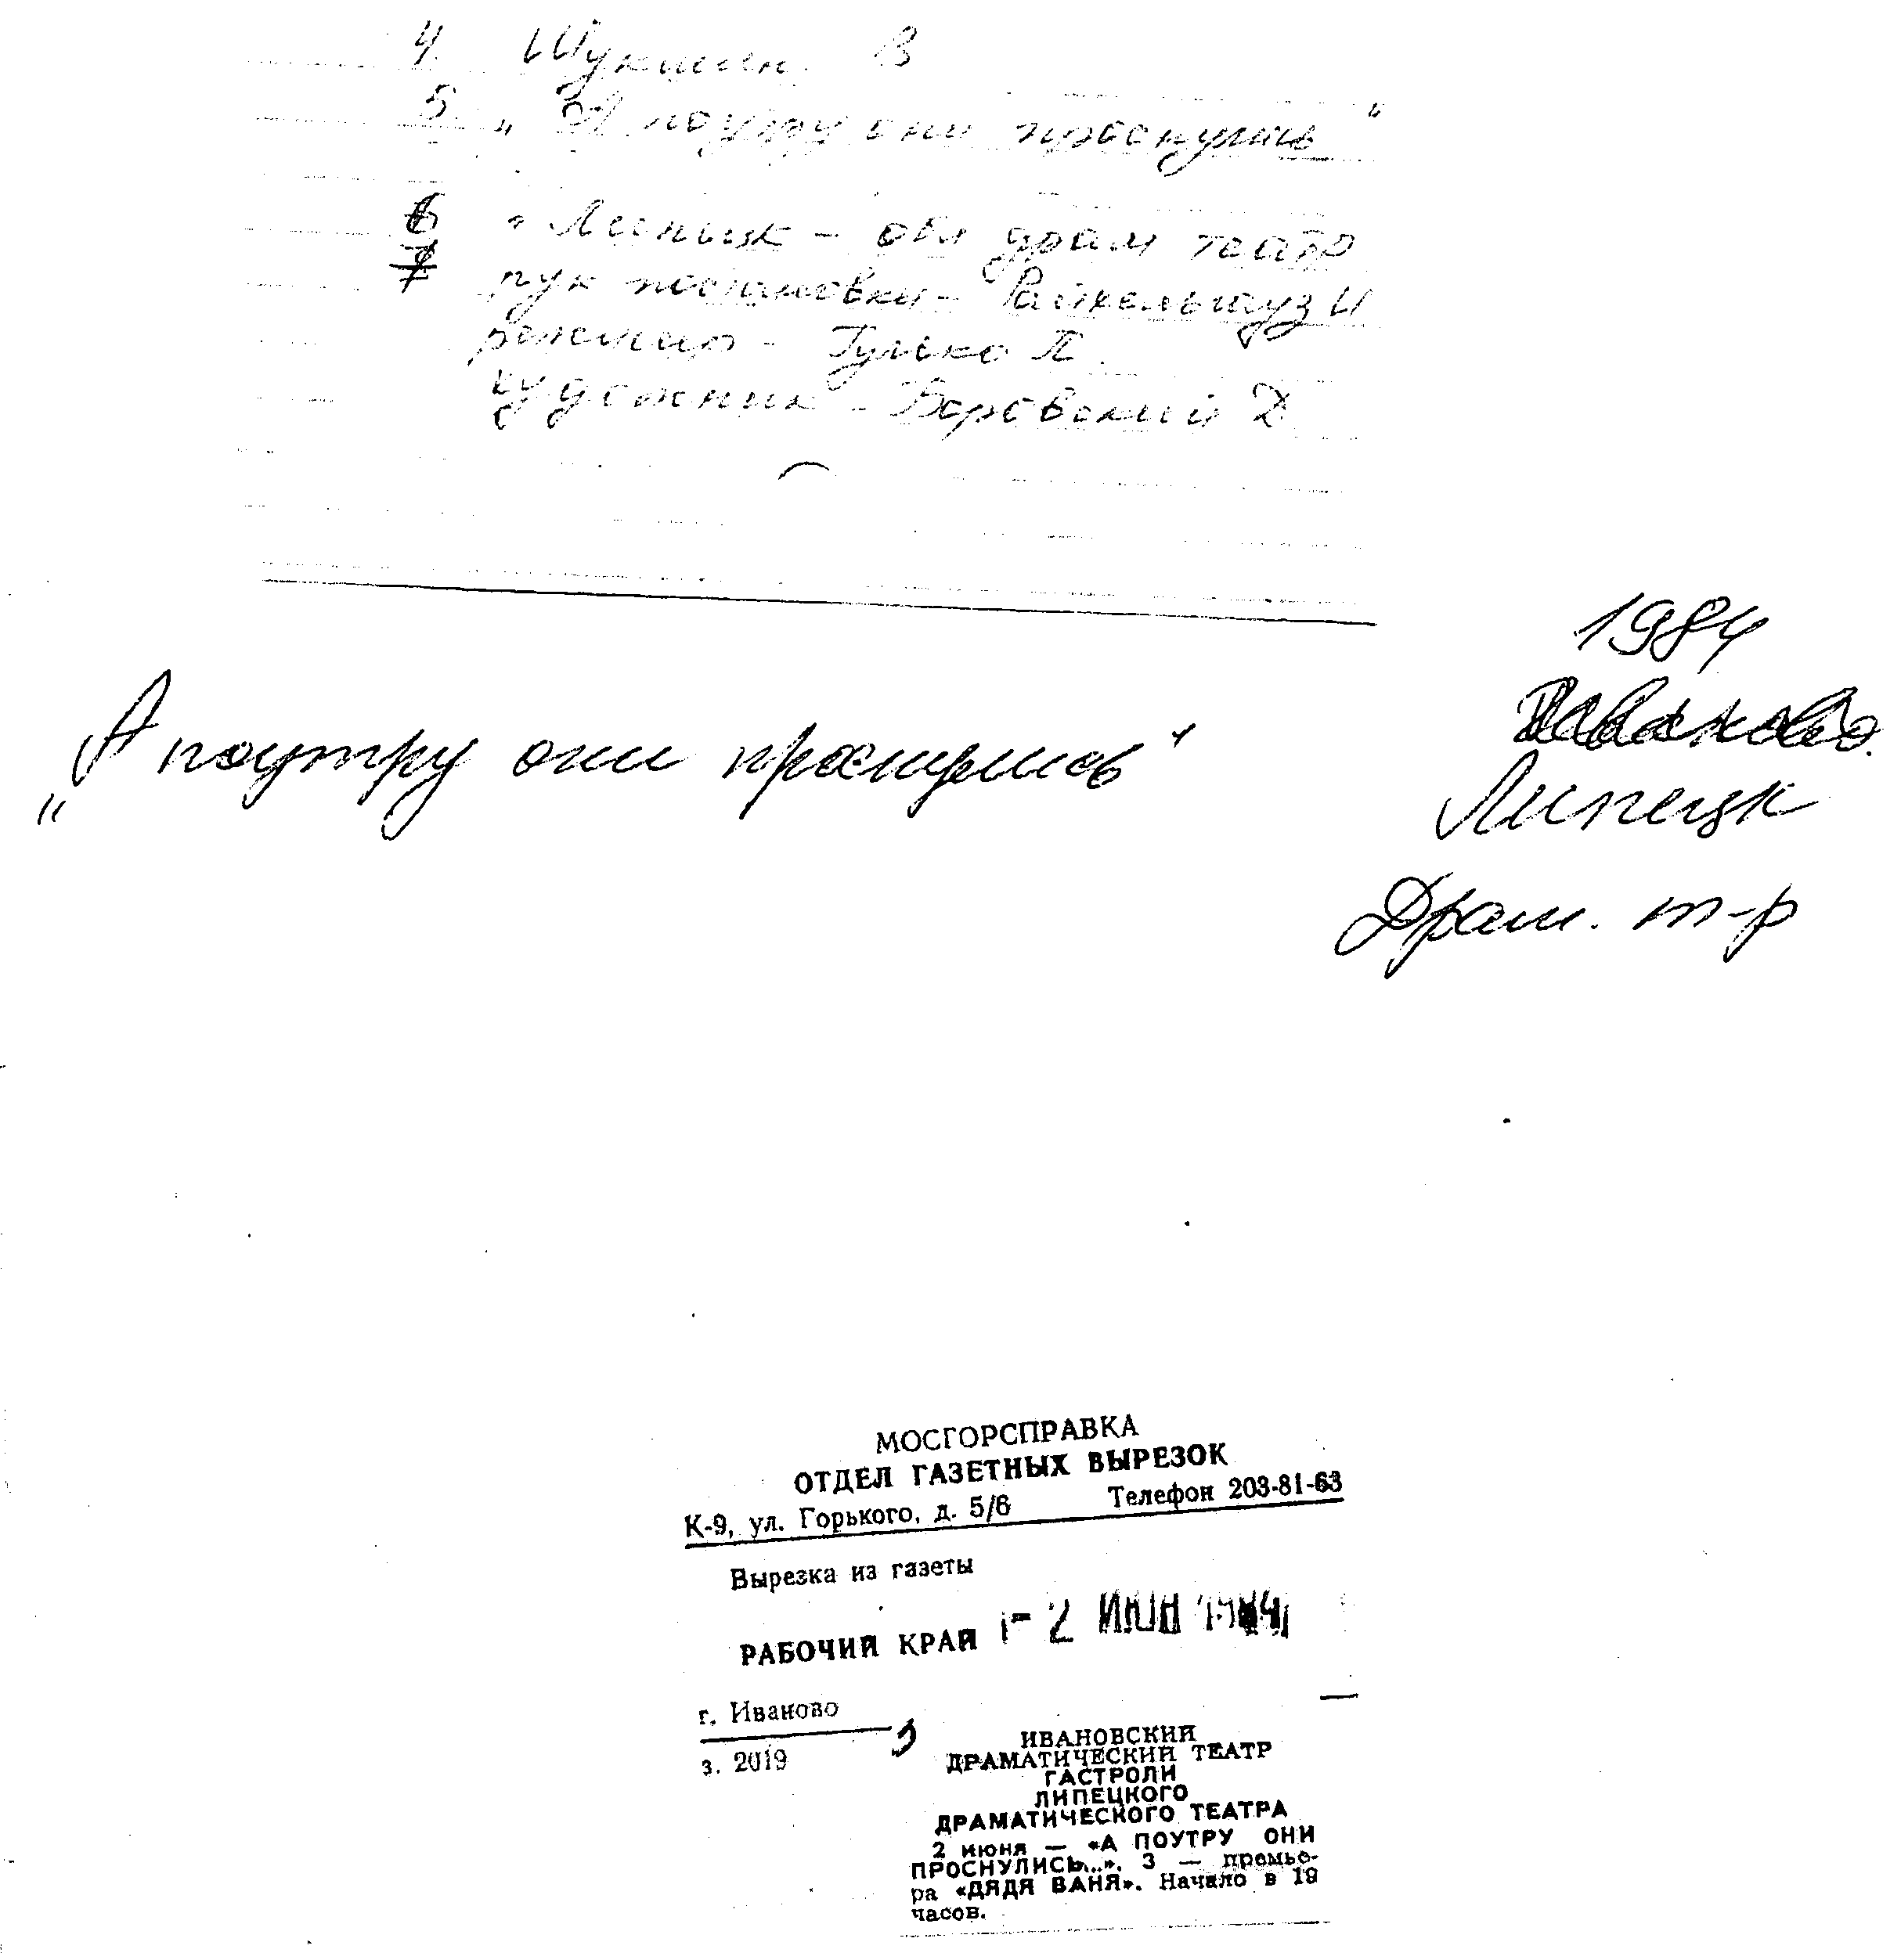 4. Шукшин В
5. „А поутру они проснулись"
6 г Липецк - обл драм театр
7 рук постановки - Райхельгауз И
режиссер - Гулько П.
художник - Боровский Д
1984
„А поутру они проснулись"
Липецк
Драм. т-р
МОСГОРСПРАВКА
ОТДЕЛ ГАЗЕТНЫХ ВЫРЕЗОК
К-9, ул. Горького, д. 5/6 Телефон 203-81-63
Вырезка из газеты
РАБОЧИЙ КРАЙ - 2 ИЮН 1984
г. Иваново
з. 2019
ИВАНОВСКИЙ
ДРАМАТИЧЕСКИЙ ТЕАТР
ГАСТРОЛИ
ЛИПЕЦКОГО
ДРАМАТИЧЕСКОГО ТЕАТРА
2 июня — «А ПОУТРУ ОНИ
ПРОСНУЛИСЬ...». 3 — премье-
ра «ДЯДЯ ВАНЯ». Начало в 19
часов.